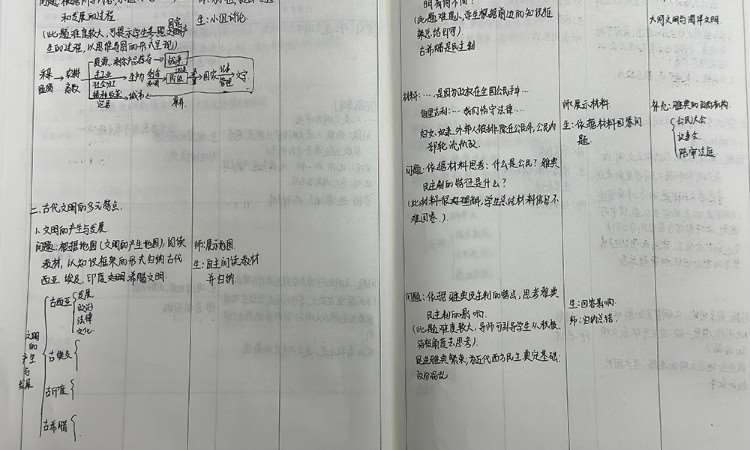 和发展的过程
生:小组讨论
(此题难度较大,可提示学生
生的过程,以思维导图的形式呈现)
采集
渔猎
农耕
畜牧
手工业
生产力
国家
文字
二、古代文明的多元特点
1.文明的产生与发展
问题:根据地图(文明的产生地图),阅读
教材,以知识框架的形式归纳古代
西亚、埃及、印度文明、希腊文明
师:展示地图
生:自主阅读教材
并归纳
文明的产生与发展
古西亚
发展
政治
法律
文化
古埃及
古印度
古希腊
明有何不同?
(此题难度小,学生根据周边的知识值
古希腊民主制
大河文明与海洋文明
材料:…,是因为政权在全国公民手中…
伯里克利:…我们遵守法律…
妇女、奴隶、外邦人被排除在公民外,公民内
部轮流执政
师:展示材料
生:依据材料回答问
题
补充:雅典的政治机构
公民大会
议事会
陪审法庭
问题:依据材料思考:什么是公民?雅典
民主制的特征是什么?
(此材料很难理解,学生总结材料信息不
难回答.)
问题:依据雅典民主制的特点,思考雅典
民主制的影响.
(此题难度较大,导师可引导学生从积极、
消极角度去思考).
民主雅典繁荣,为近代西方民主奠定基础
生:回答影响
师:归纳总结